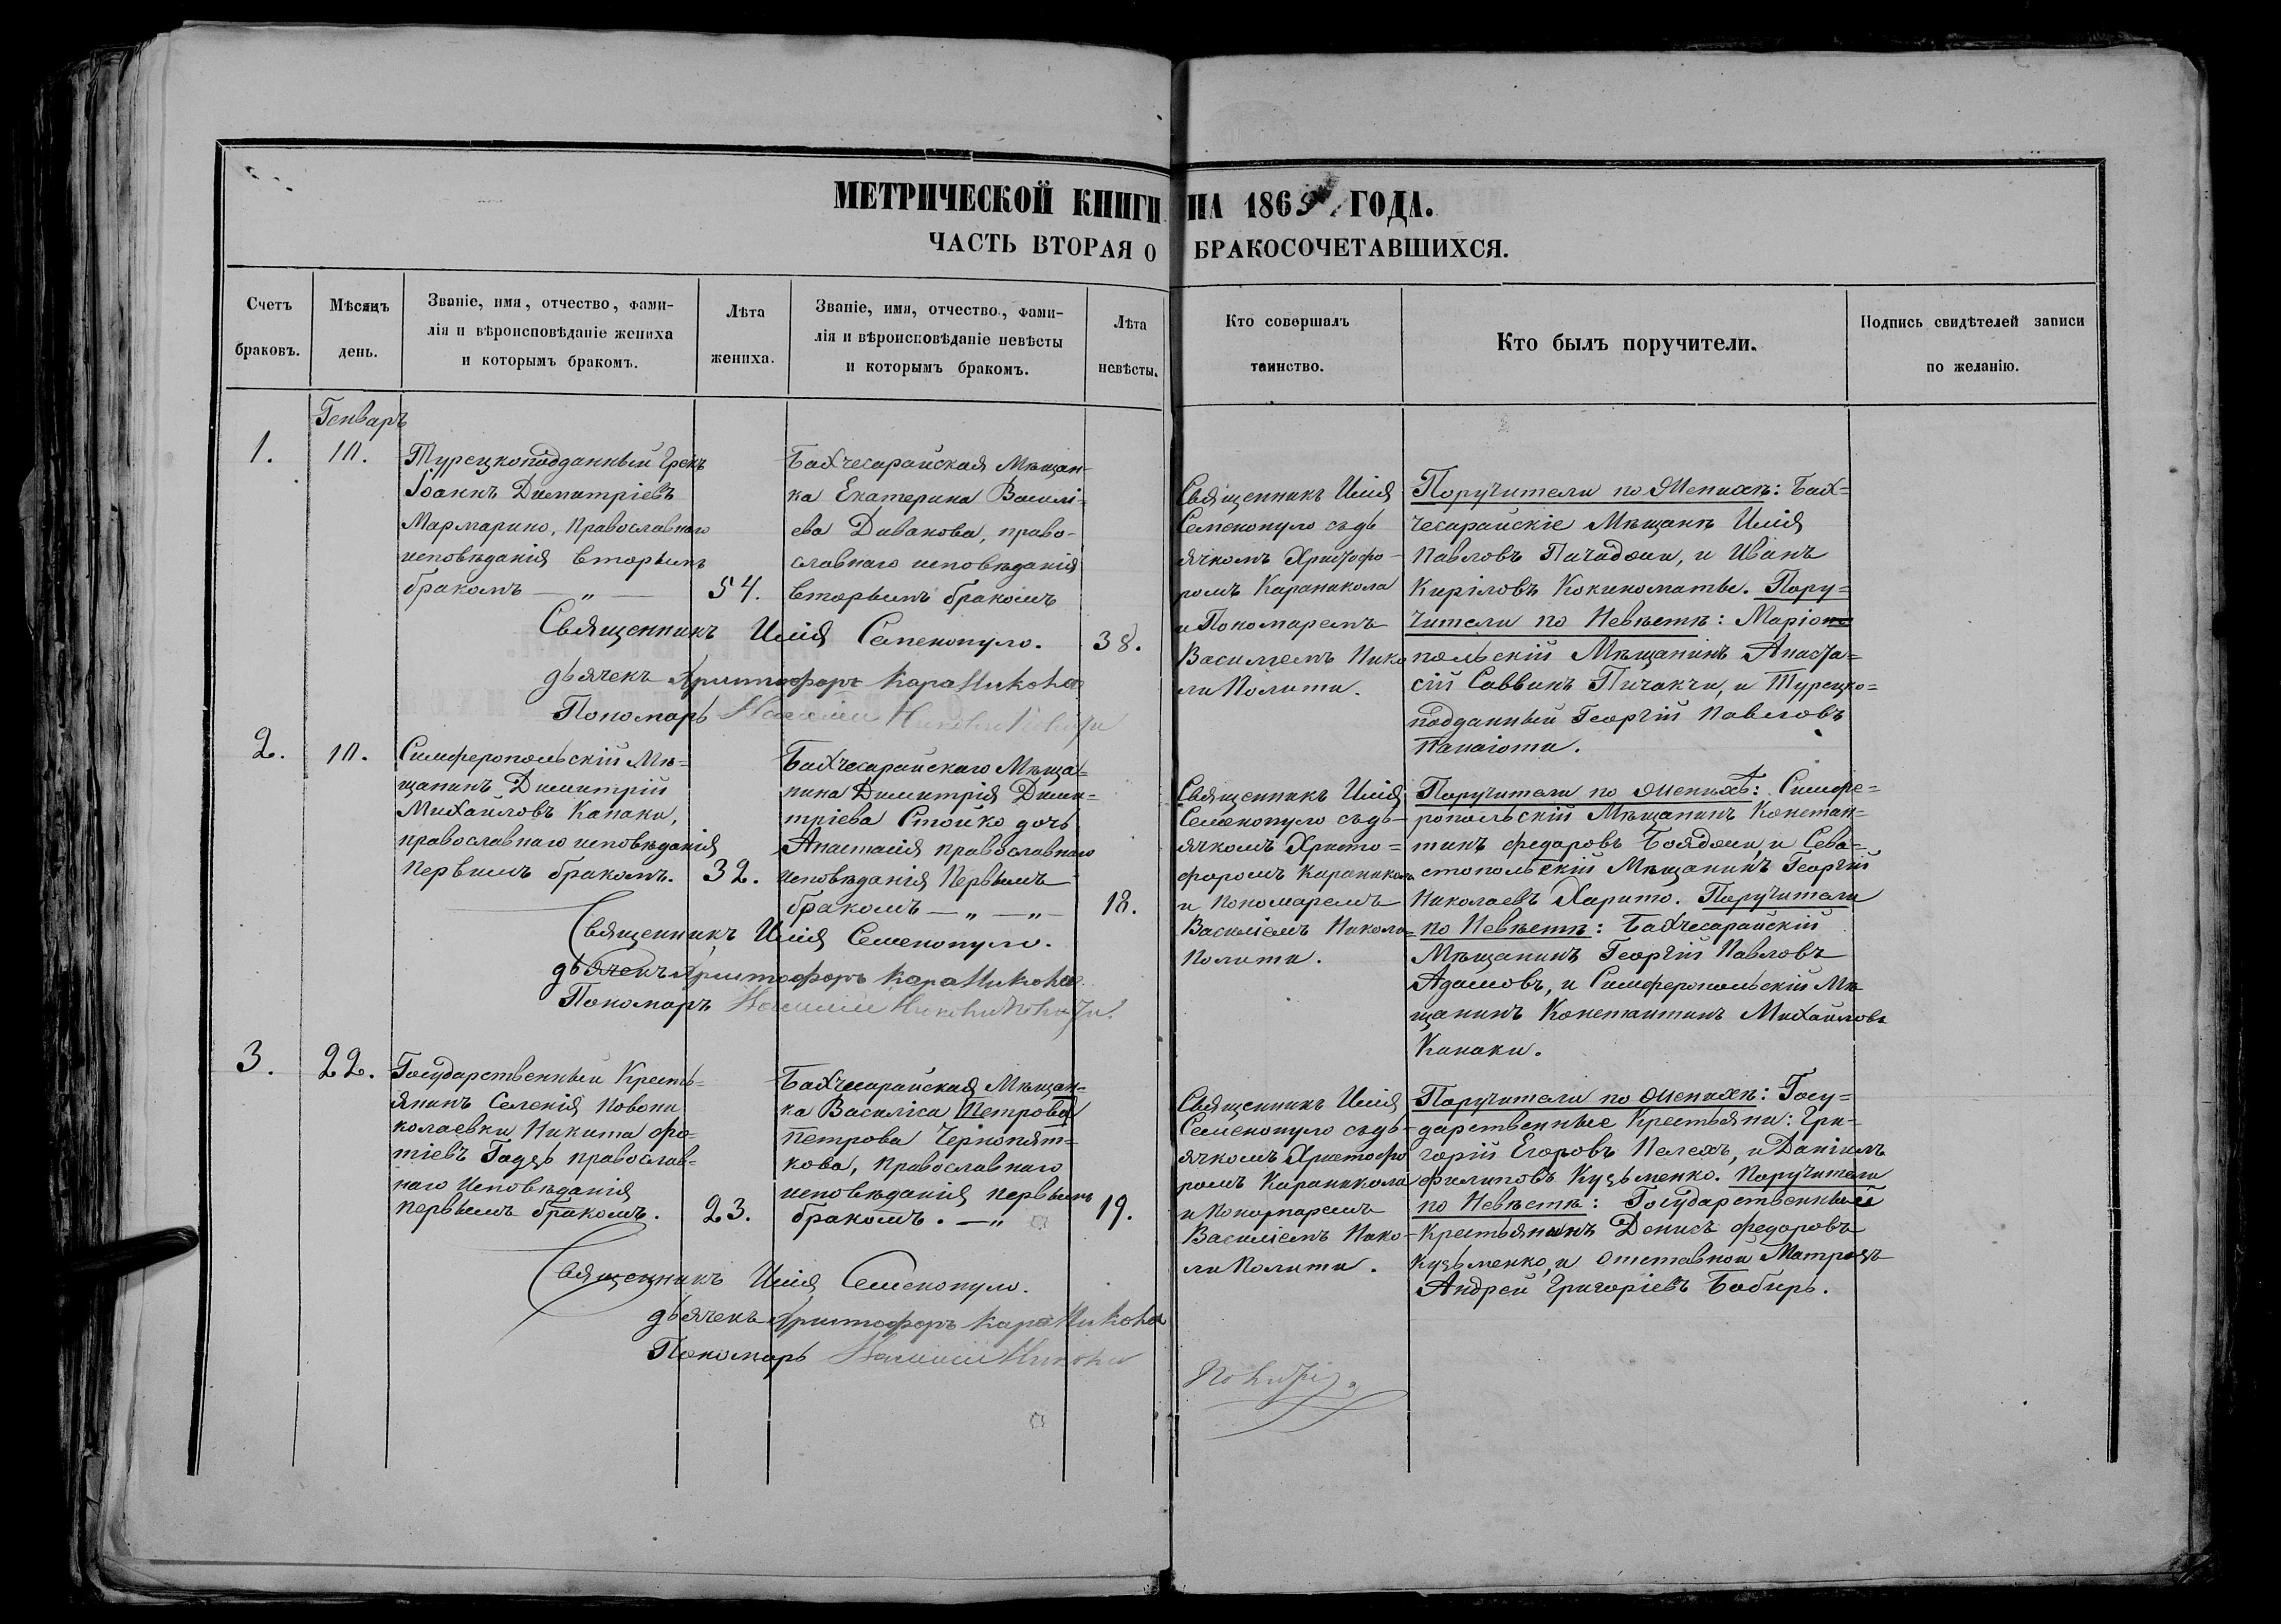 МЕТРИЧЕСКОЙ КНИГИ НА 1865 ГОДА.
ЧАСТЬ ВТОРАЯ О БРАКОСОЧЕТАВШИХСЯ.
Счетъ браковъ.
Мѣсяцъ день.
Званіе, имя, отчество, фами-
лія и вѣроисповѣданіе жениха
и которымъ бракомъ.
Лѣта жениха.
Званіе, имя, отчество, фами-
лія и вѣроисповѣданіе невѣсты
и которымъ бракомъ.
Лѣта невѣсты.
Кто совершалъ таинство.
Кто былъ поручители.
Подпись свидѣтелей записи
по желанію.
Генварь
1.
10.
Турецкоподданный Грекъ
Іоаннъ Димитріевъ
Мармарино, православнаго
исповѣданія вторымъ
бракомъ — „ —
54.
Бахчесарайская Мѣщан-
ка Екатерина Василі-
ева Дивакова, право-
славнаго исповѣданія
вторымъ бракомъ
38.
Священникъ Илія
Семенопуло съ дь
ячкомъ Христофо-
ромъ Караникола
и Пономаремъ
Василіемъ Нико
ли Полити.
Поручители по Женихѣ: Бах=
чесарайскіе Мѣщане Илія
Павловъ Пичаджи, и Иванъ
Кириловъ Кокиноматы. Пору=
чители по Невѣстѣ: Маріо
польскій Мѣщанинъ Анаста=
сій Саввинъ Пичакчи, и Турецко=
подданный Георгій Павловъ
Панаіоти.
Священникъ Илія Семенопуло.
дьячекъ Христофоръ КараНикола
Пономарь Василий Николи Полити
2.
10.
Симферопольскій Мѣ=
щанинъ Димитрій
Михаиловъ Канаки,
православнаго исповѣданія
первымъ бракомъ.
32.
Бахчесарайскаго Мѣща=
нина Димитрія Дими=
тріева Стойко дочь
Анастасія православнаго
исповѣданія первымъ
бракомъ — „ — „ —
18.
Священникъ Илія
Семенопуло съ дь-
ячкомъ Христо=
форомъ Караникола
и пономаремъ
Василіемъ Николи
Полити.
Поручители по Женихѣ: Симфе=
ропольскій Мѣщанинъ Констан=
тинъ Федоровъ Бояджи, и Сева=
стопольскій Мѣщанинъ Георгій
Николаевъ Харито. Поручители
по Невѣстѣ: Бахчесарайскій
Мѣщанинъ Георгій Павловъ
Адамовъ, и Симферопольскій Мѣ
щанинъ Константинъ Михаиловъ
Канаки.
Священникъ Илія Семенопуло.
дьячекъ Христофоръ КараНикола
Пономарь Василий Николи Полити.
3.
22.
Государственный Кресть=
янинъ Селенія Новони
колаевки Никита Фо=
тіевъ православ=
наго Исповѣданія
первымъ бракомъ.
23.
Бахчесарайская Мѣщан=
ка Василіса Петрова
Петрова Чернопят=
кова, православнаго
исповѣданія первымъ
бракомъ. — „
19.
Священникъ Илія
Семенопуло съ дь-
ячкомъ Христофо
ромъ Караникола
и Пономаремъ
Василіемъ Нико-
ли Полити.
Поручители по Женихѣ: Госу=
дарственные Крестьяни: Гри=
горій Егоровъ Пелехъ, и Даніилъ
Филиповъ Кузьменко. Поручители
по Невѣстѣ: Государственный
Крестьянинъ Денисъ Федоровъ
Кузьменко, и Отставной Матрозъ
Андрей Григоріевъ Бабирь.
Священникъ Илія Семенопуло.
дьячекъ Христофоръ КараНикола
Пономарь Василий Николи
Полити.